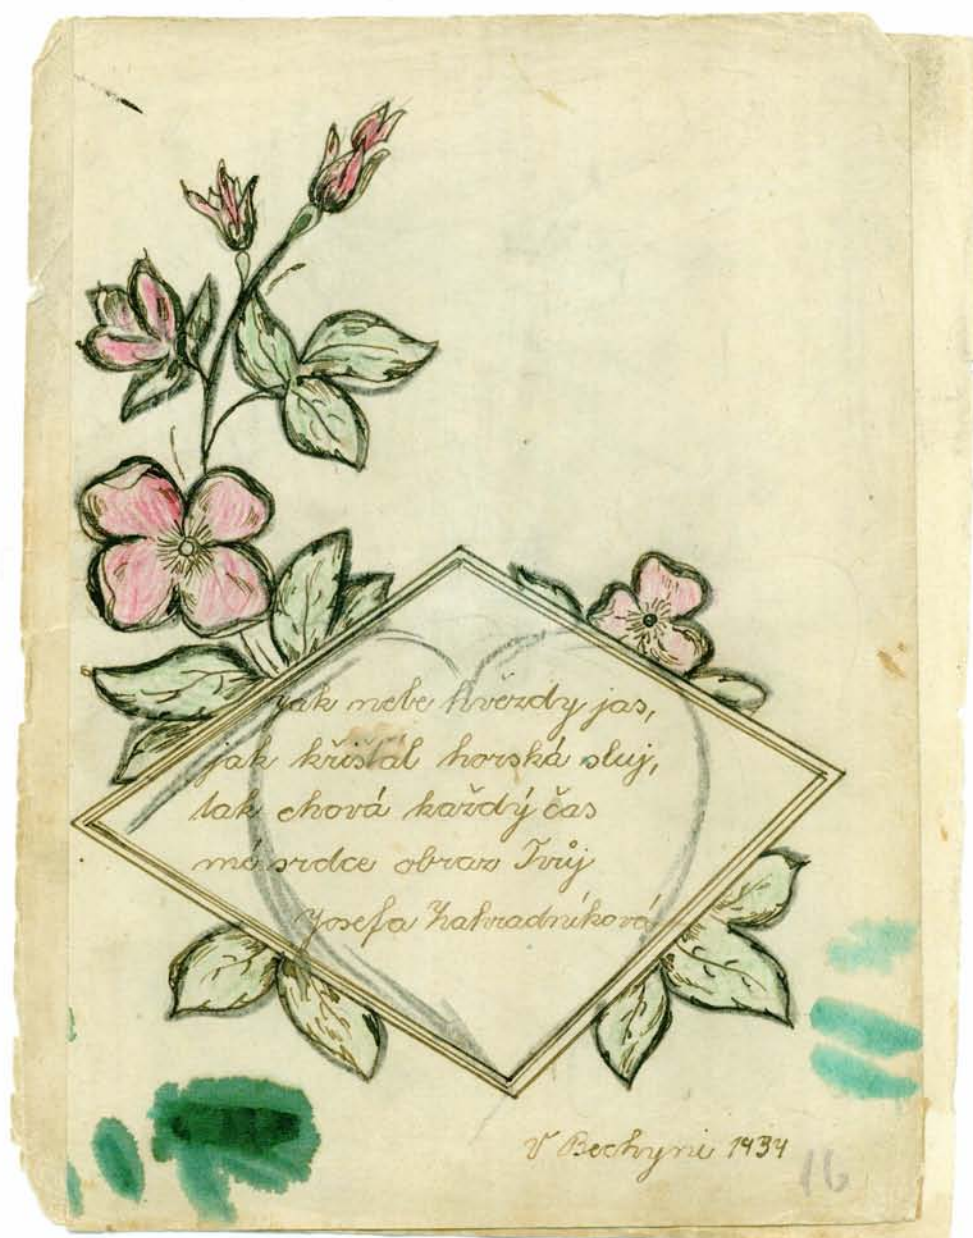 jak nebe hvězdy jas,
jak křišťál horská sluj,
tak chová každý čas
mé srdce obraz Tvůj
Josefa Zahradníková
V Bechyni 1934
16